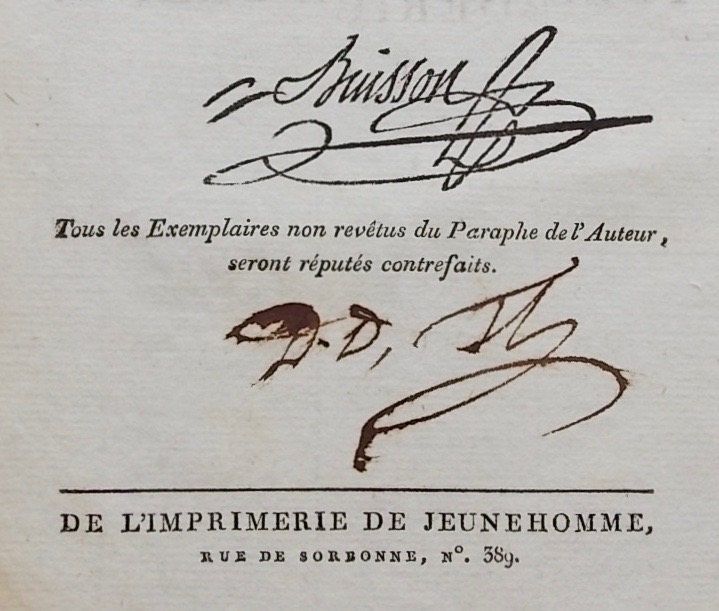 Buisson
Tous les Exemplaires non revêtus du Paraphe de l'Auteur,
seront réputés contrefaits.
D. D,
DE L'IMPRIMERIE DE JEUNEHOMME,
RUE DE SORBONNE, N°. 389.